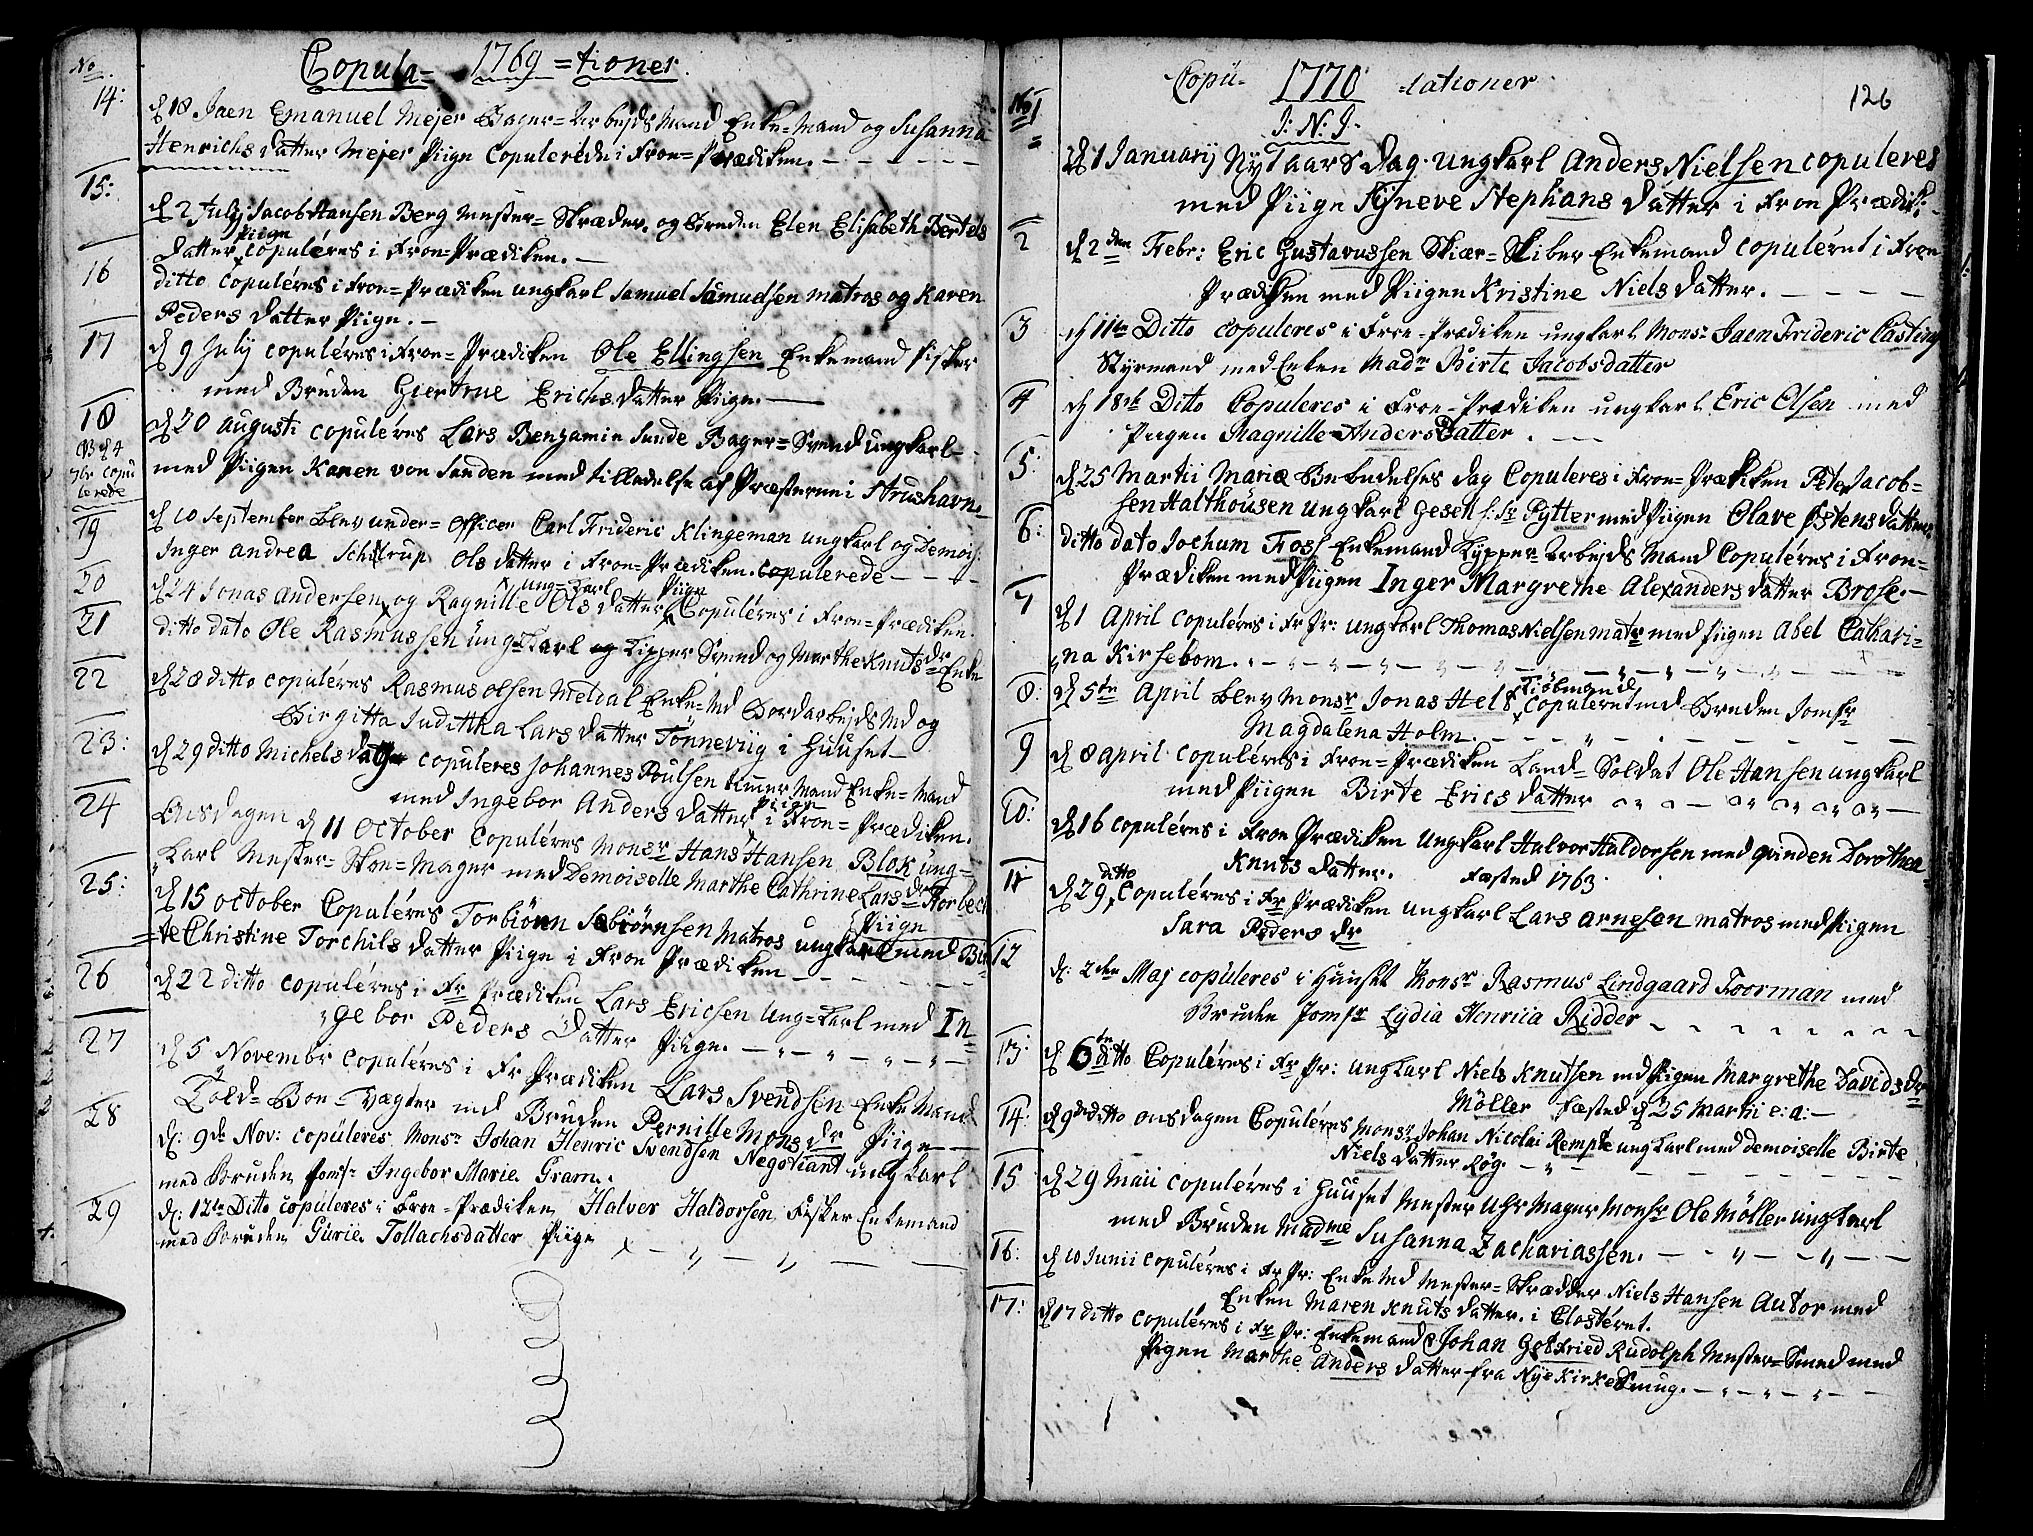 No Copula= 1769 =tioner.
14: d 18 Jaen Emanuel Mejer Bager= Arbejds Mand Enke=Mand og Susanna
Henrichs datter Mejer Piige Copulerede i Froe=Prædiken. — — — —
15: d 2 July Jacob Hansen Berg Mester= Skræder. og Bruden Elen Elisabeth Bertels
Piige
datter copuléres i Froe=Prædiken. —
16 ditto Copuléres i Froe=Prædiken ungkarl Samuel Samuelsen matros og Karen
Peders datter Piige. —
17 d 9 July copuléres i Froe=Prædiken Ole Ellingsen Enkemand Fisker
med Bruden Giertrue Erichs datter Piige. —
18 d 20 Augusti copuléres Lars Benjamin Sunde Bager=Svend ungkarl—
med Piigen Karen von Sanden med tilladelse af Præsterne i Strushavn.
lerede
19 d 10 September blev under= officer Carl Frideric Klingeman ungkarl og Demois:
Inger Andrea Schitrup Ols datter i Froe=Prædiken. copulerede — — —
ung=karl Piige
20 d 24 Jonas Andersen og Ragnille Ols datter Copuléres i Froe=Prædiken.
21 ditto dato Ole Rasmussen ung=karl og Kipper Svend og Marthe Knuts dr Enke
22 d 28 ditto copuléres Rasmus Olsen Meldal Enke=Md Bordarbejds Md og
Birgitta Judittha Lars datter Tönneviig i Huuset—
23: d 29 ditto Michels dag copuleres Johannes Poulsen timer Mand Enke=Mand
med Ingebor Anders datter i Froe=Prædiken.
Piige
24 Onsdagen d 11 October Copuléres Monsr Hans Hansen Blok ung=
karl Mester=Skoe=Mager med Demoiselle Marthe Cathrine Lars dr Horbech
Piige
25: d 15 October Copuléres Torbiörn Sebiörnsen Matros ungkarl med Bir
=te Christine Torchils datter Piige i Froe Prædiken — — —
26 d 22 ditto copuléres i Fr Prædiken Lars Ericsen Ung=karl med In
gebor Peders datter Piige. — „ — „ — „ —
27 d 5 Novembr Copuléres i Fr Prædiken Lars Svendsen Enke Mand
Told=Boe=Vægter md Bruden Pernille Mons dr Piige —
28 d: 9de Nov: copúleres Monsr Johan Henric Svendsen Negotiant ung karl
med Bruden Jomfr Ingebor Marie Gram.
29 d: 12te Ditto copúleres i Froe-Prædiken Halver Haldorsen Fisker Enkemand
med Bruden Gúrie Tollachsdatter Piige
Copú- 1770 -lationer 126
J: N: J.
No 1 d 1 Januarij Nytaars Dag. Ungkarl Anders Nielsen copuleres
med Piige Synneve Stephans datter i Froe Prædik:
2 d 2den Febr: Eric Gustavussen Skiær=Skiber Enkemand copuléret i Froe
Prædiken med Piigen Kristine Niels datter. — — — —
3 d 11te Ditto copuleres i Froe-Prædiken ungkarl Monsr Jaen Frideric Casting
Styrmand med Enken Madm Birte Jacobsdatter
4 d 18de Ditto Copuleres i Froe-Prædiken ungkarl Eric Olsen med
Piigen Ragnille Anders Datter. —
5: d 25 Martii Mariæ Bebudelses Dag Copuleres i Froe=Prædiken Peter Jacob=
sen Halthousen ungkarl Gesell med Piigen Olave Østens datter
6: ditto dato Jochum Foss Enkemand Kypper Arbejds Mand Copuléres i Froe=
Prædiken med Piigen Inger Margrethe Alexanders datter Brose. —
7 d 1 April copuléres i Fr Pr: ungkarl Thomas Nielsen matr med Piigen Abel Cathari=
na Kirsebom.
8: d 5te April blev Monsr Jonas Hels copuleret md Bruden Jomfr
Kiøbmand
Magdalena Holm.
9 d 8 april copuléres i Froe=Prædiken Land=Soldat Ole Hansen ungkarl
med Piigen Birte Erics datter
10: d 16 copuléres i Froe Prædiken Ungkarl Halvor Haldorsen med qvinden Dorothea
Knuts datter. Fæsted 1763.
ditto
11 d 29 Copuléres i Fr Prædiken ungkarl Lars Arnesen matros med Piigen
Sara Peders dr
12 d: 2den Maj copúleres i Huuset Monsr Rasmus Lindgaard Foorman med
Bruden Jomfr Lydia Henrica Ridder
13: d 6te ditto Copuléres i Fr Pr: ungkarl Niels Knutsen md Piigen Margrethe Davids dr
Möller Fæsted d 25 Martii e: a: —
14: d 9de ditto onsdagen Copuléres Monsr Johan Nicolai Rempte ungkarl med demoiselle Birte
Niels datter Røg.
15 d 29 Maii copuléres i Huuset Mester Uhr Mager Monsr Ole Möller ungkarl
med Bruden Madme Susanna Zachariassen.
16: d 10 Junii copuléres i Fr Pr: Enke Md Mester=Skrædder Niels Hansen Autor med
Enken Maren Knuts datter. i Clostéret.
17: d 17 ditto copuléres i Fr Pr: Enkemand Johan Gotfried Rudolph Mester=Smed med
Piigen Marthe Anders datter fra Nye Kirke Smug.